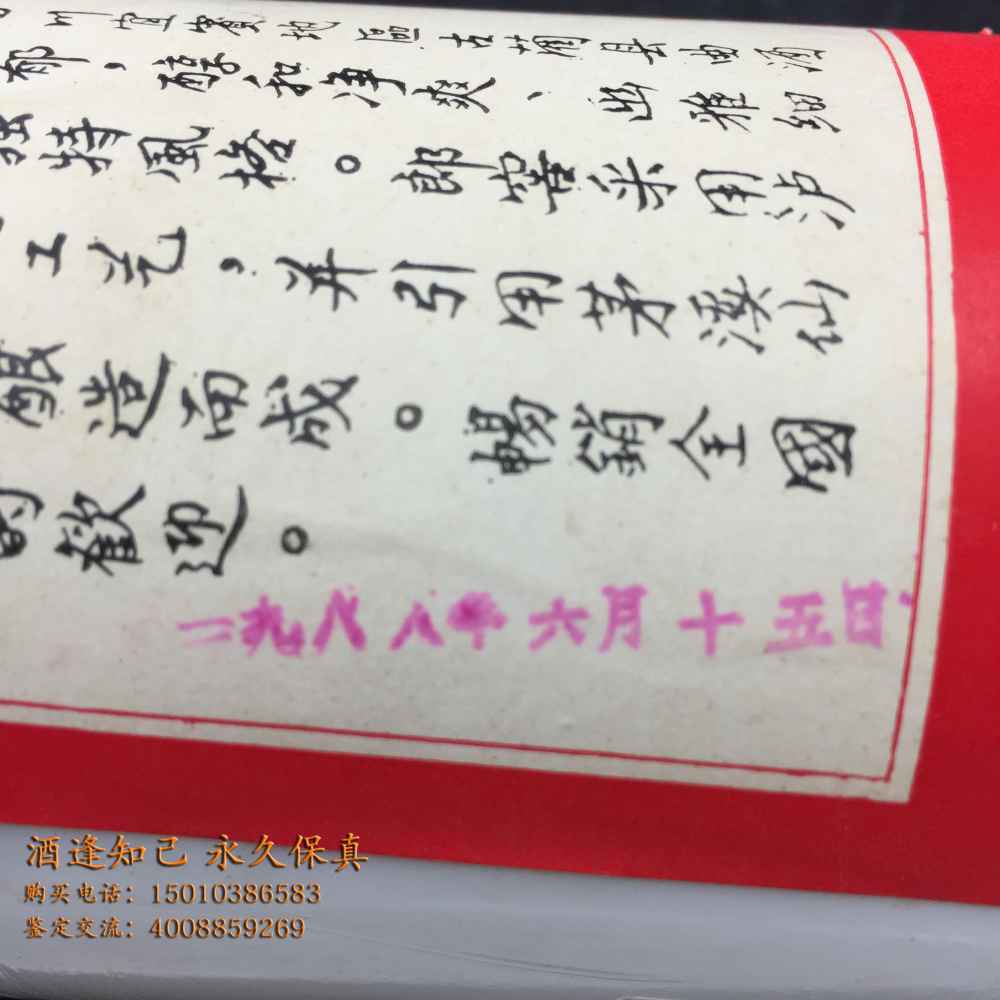 川宜賓地區古藺县曲酒
郁，醇和净爽、幽雅细
独特風格。郎窖采用泸
工艺，并引用茅溪仙
酿造而成。暢銷全國
的歡迎。
一九八八年六月十五日
酒逢知己 永久保真
购买电话：15010386583
鉴定交流：4008859269